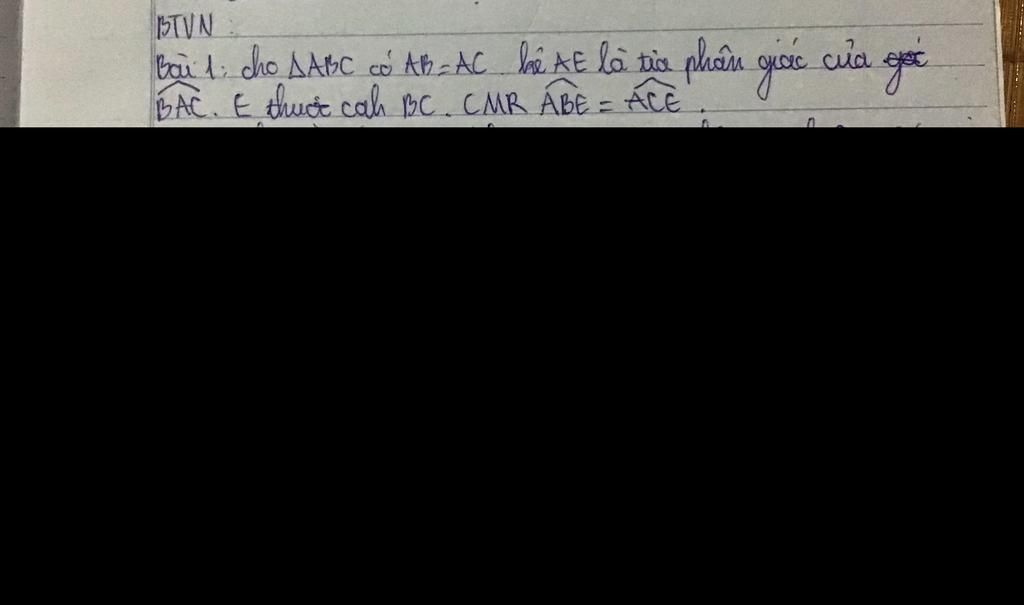 BTVN:
Bài 1: cho ΔABC có AB=AC kẻ AE là tia phân giác của góc
BAC. E thuộc cah BC. CMR ABE = ACE.